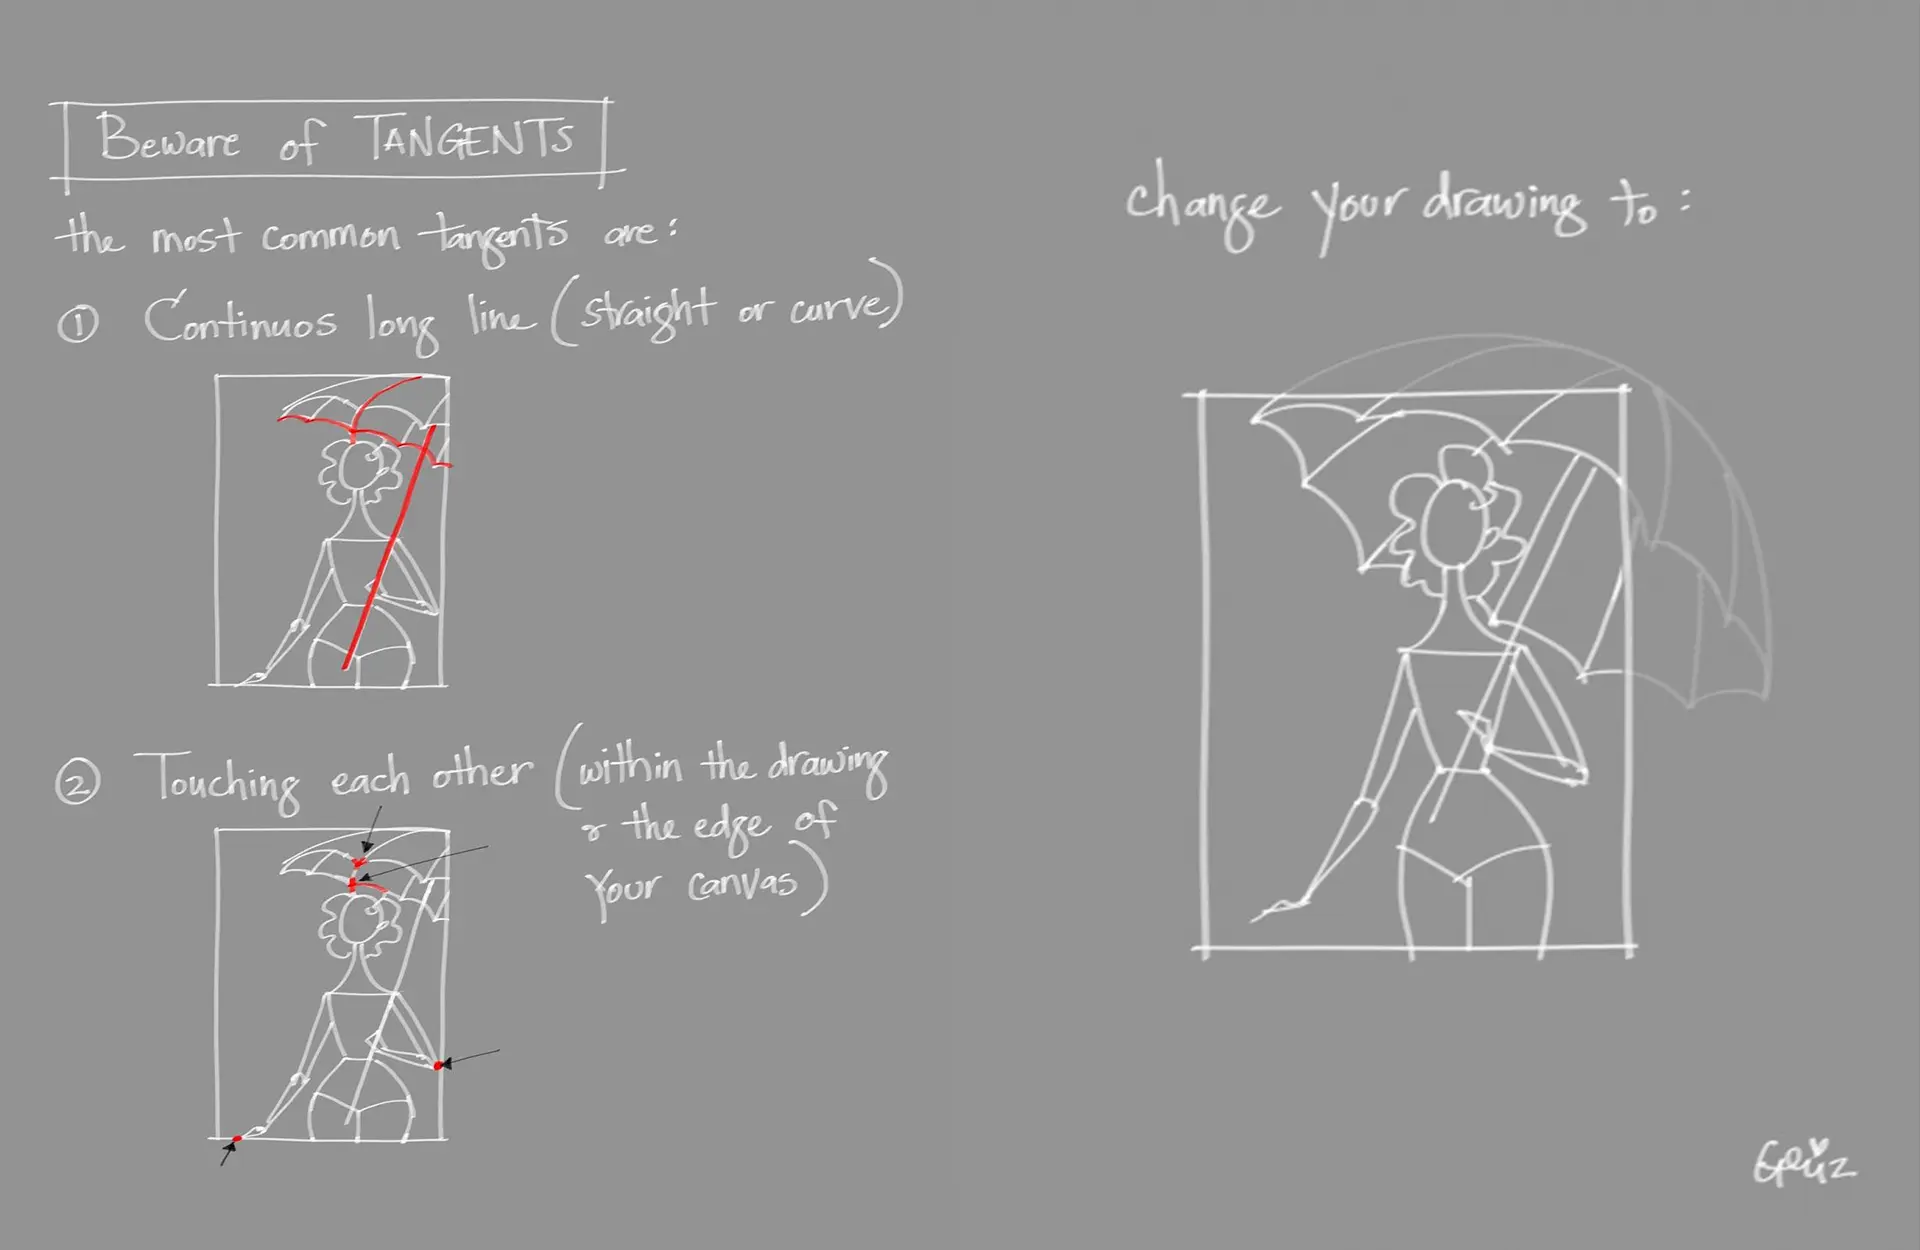 Beware of TANGENTS
the most common tangents are:
① Continuos long line (straight or curve)
② Touching each other (within the drawing
r the edge of
your canvas)
change your drawing to: